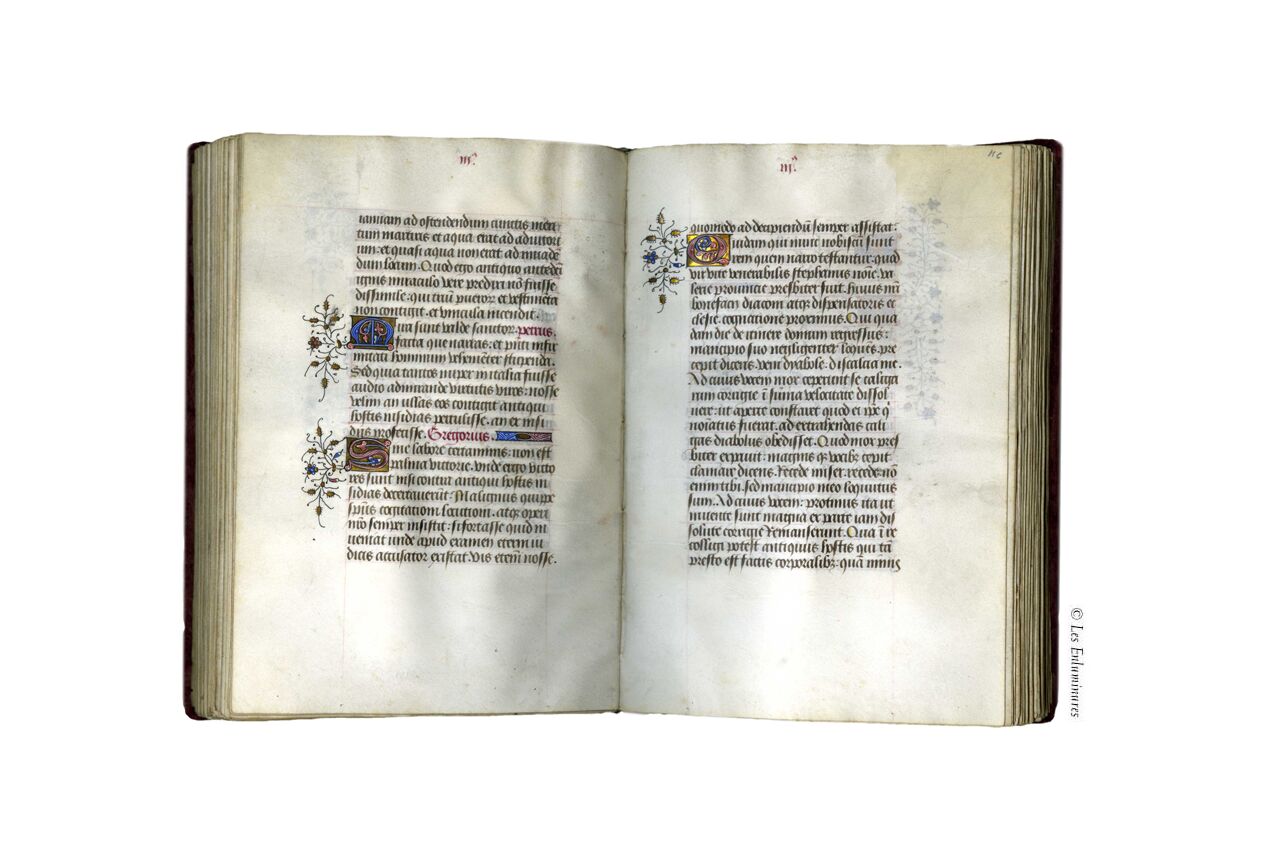 iii.ᵃ
ianuam ad ostendendum cunctis meri
tum martiris et aqua erat ad adiutori
um: et quasi aqua non erat ad inuaden
dum locum. Quod ego antiquo anteden
ignis miraculo vere predixi nō fuisse
dissimile: qui triū pueror et vestimēta
non contigit, et vincula incendit.
Mira sunt valde sanctor. petrus.
facta que narras: et pn̄ti infir
mitati hominum vehemēter stupenda.
Sed quia tantos nuper in italia fuisse
audio admirande virtutis viros: nosse
velim an ullas eos contigit antiqui
hostis insidias pertulisse. an ex insi
diis profecisse. Gregorius.
Sine labore certaminis: non est
palma victorie. vnde ergo victo
res sunt nisi contra antiqui hostis in
sidias decertauerūt: Malignus quippe
spūs cogitationi locutioni. atqꝫ operi
nrō semper insistit: si fortasse quid in
ueniat unde apud examen eterni iu
dicis accusator existat. Vis etem nosse.
iii.ᵃ
116
quomodo ad decipiendū semper assistat:
Quidam qui nunc nobiscū sunt
rem quem narro testantur. quod
vir vite venerabilis stephanus noīe. va
lerie prouincie presbiter fuit. huius nr̄i
bonefacii diaconi atqꝫ dispensatoris ec
clesie. cognatione proximus. Qui qua
dam die de itinere domum regressus:
mancipio suo negligenter loquens. pre
cepit dicens. veni dyabole. discalcia me.
Ad cuius vocem mox ceperunt se caliga
rum corrigie ī sūma velocitate dissol
uere: ut aperte constaret quod et ipe q̄
noīatus fuerat. ad extrahendas cali
gas diabolus obedisset. Quod mox pres
biter expauit: magnis qꝫ vocibꝫ cepit
clamare dicens. Recede miser. recede. nō
enim tibi. sed mancipio meo loquutus
sum. Ad cuius vocem: protinus ita ut
inuente sunt magna ex parte iam dis
solute corrigie remanserunt. Qua ī re
colligi potest antiquus hostis qui tā
presto est factis corporalibꝫ: quā nimis
© Les Enluminures